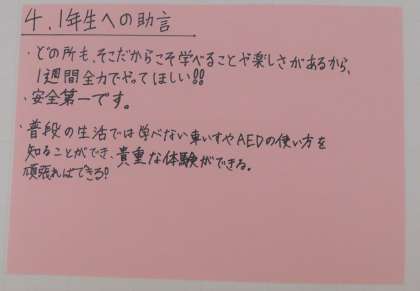 4、1年生への助言
・どの所も、そこだからこそ学べることや楽しさがあるから、
1週間全力でやってほしい!!
・安全第一です。
・普段の生活では学べない車いすやAEDの使い方を
知ることができ、貴重な体験ができる。
頑張ればできる!